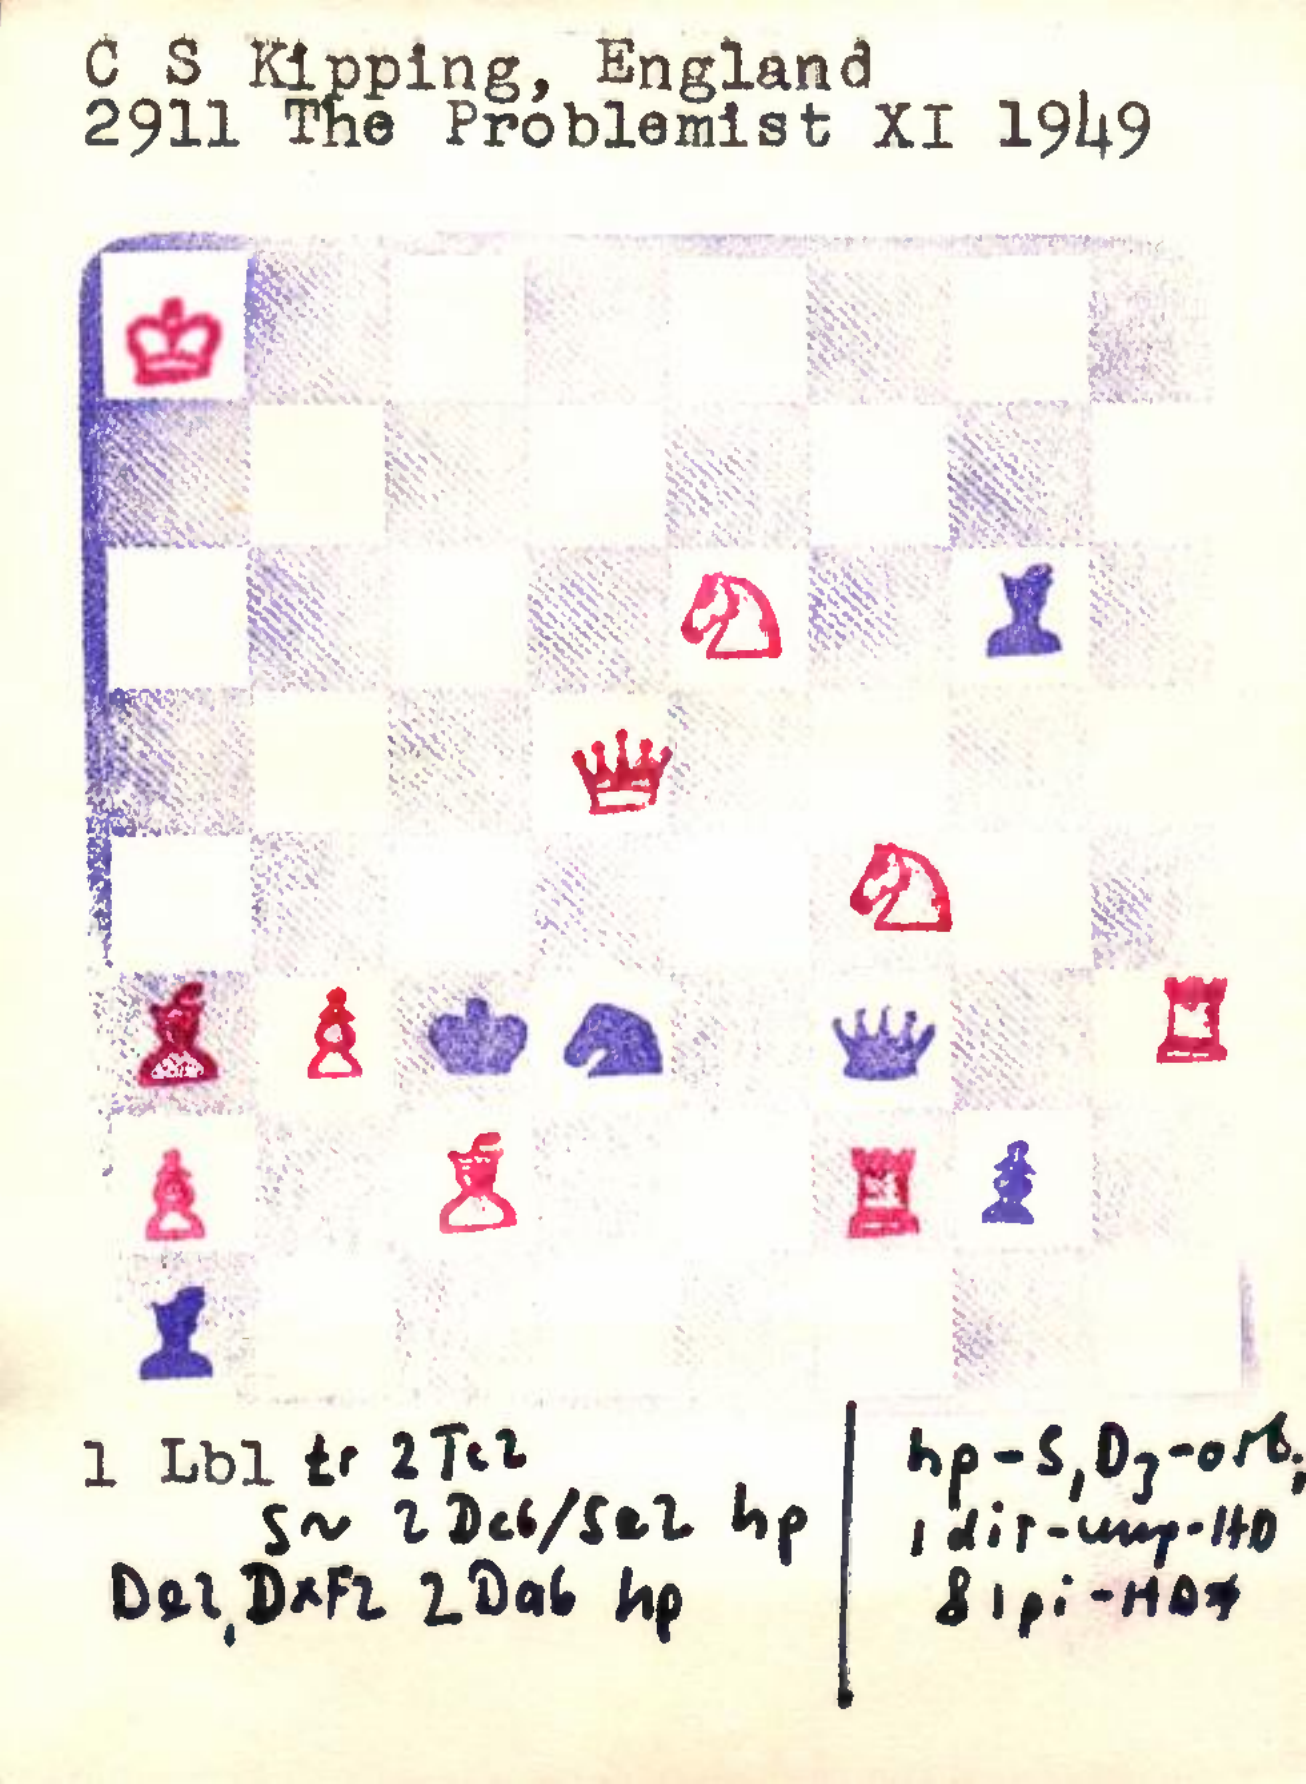 C S Kipping, England
2911 The Problemist XI 1949
1 Lbl tr 2Tc2
S~ 2Dc6/Se2 hp
De2, DxF2 2Da6 hp
hp-S, D
1 dir-ump-HD
81pi-HD